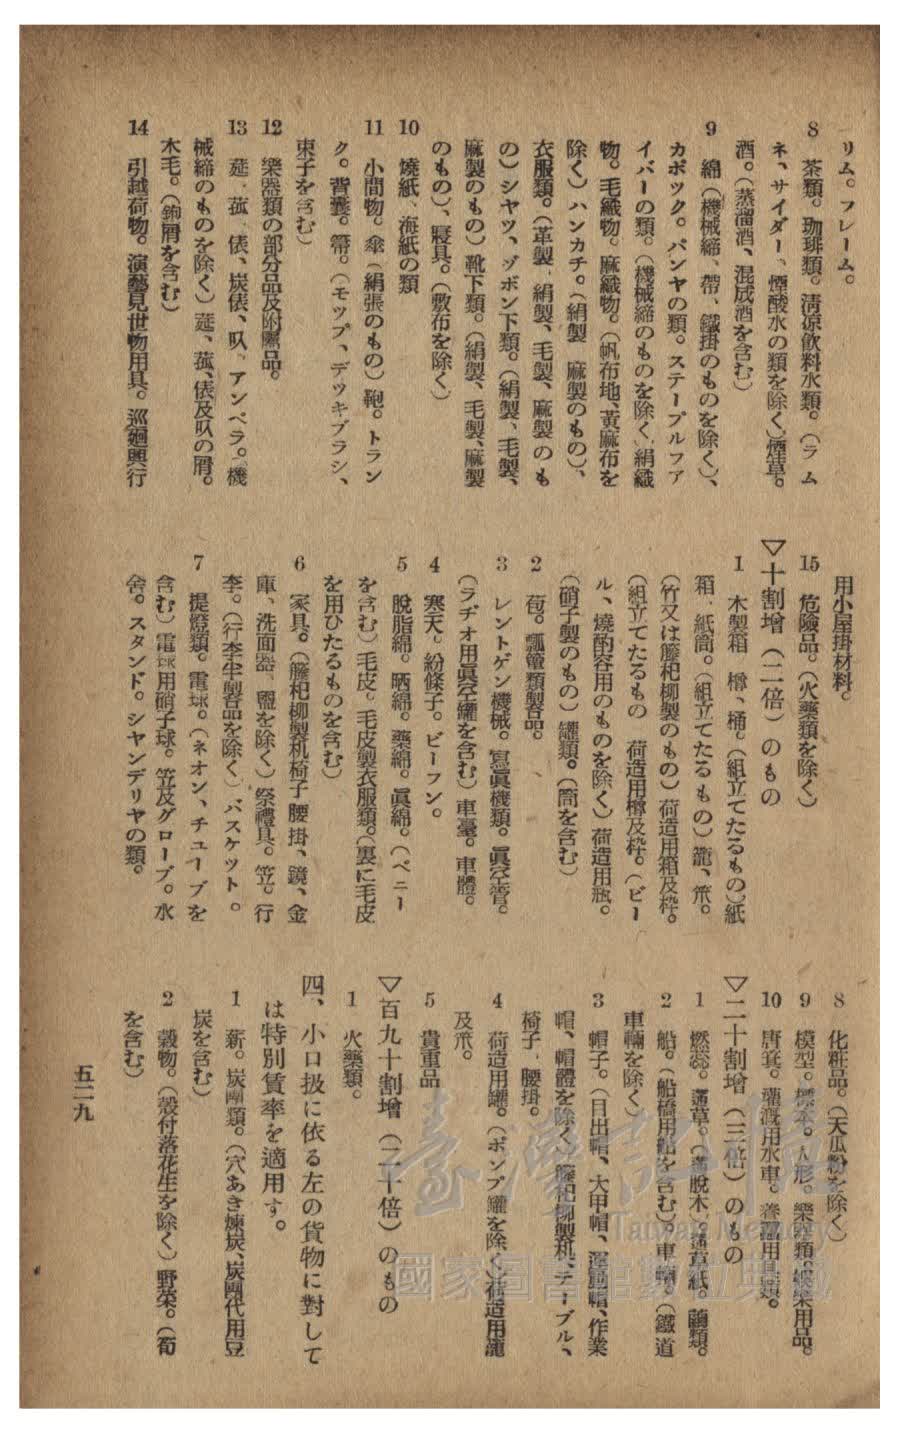 リム。フレーム。
8 茶類。珈琲類。淸凉飮料水類。(ラム
ネ、サイダー、煙酸水の類を除く)煙草。
酒。(蒸溜酒、混成酒を含む)
9 綿(機械締、帶、鐵掛のものを除く)、
カポック。パンヤの類。ステープルファ
イバーの類。(機械締のものを除く)絹織
物。毛織物。麻織物。(帆布地、黃麻布を
除く)ハンカチ。(絹製 麻製のもの)、
衣服類。(革製、絹製、毛製、麻製のも
の)シヤツ、ヅボン下類。(絹製、毛製、
麻製のもの)靴下類。(絹製、毛製、麻製
のもの)、寢具。(敷布を除く)
10 燒紙、海紙の類
11 小間物。傘(絹張のもの)鞄。トラン
ク。背囊。箒。(モツプ、デツキブラシ、
束子を含む)
12 樂器類の部分品及附屬品。
13 莚、菰、俵、炭俵、叺、アンペラ。(機
械締のものを除く)莚、菰、俵及叺の屑。
木毛。(鉋屑を含む)
14 引越荷物。演藝見世物用具。巡廻興行
用小屋掛材料。
15 危險品。(火藥類を除く)
▽十割增(二倍)のもの
1 木製箱 樽、桶。(組立てたるもの)紙
箱、紙筒。(組立てたるもの)籠、笊。
(竹又は籐杞柳製のもの)荷造用箱及枠。
(組立てたるもの 荷造用樽及枠。(ビー
ル、燒酌容用のものを除く)荷造用甁。
(硝子製のもの)罐類。(筒を含む)
2 苞。瓢簞類製品。
3 レントゲン機械。寫眞機類。眞空管。
(ラヂオ用眞空罐を含む)車臺。車體。
4 寒天。紛條子。ビーフン。
5 脫脂綿。晒綿。藥綿。眞綿。(ペニー
を含む)毛皮。毛皮製衣服類。(裏に毛皮
を用ひたるものを含む)
6 家具。(籐杞柳製机椅子 腰掛、鏡、金
庫、洗面器、盥を除く)祭禮具。笠。行
李。(行李半製品を除く)バスケット。
7 提燈類。電球。(ネオン、チューブを
含む)電球用硝子球。笠及グローブ。水
舍。スタンド。シヤンデリヤの類。
8 化粧品。(天瓜粉を除く)
9 模型。標本。人形。樂器類。娛樂用品。
10 唐箕。灌漑用水車。養蠶用具類。
▽二十割增(三倍)のもの
1 燃蕊。蓪草。(蓪脫木)。蓪草紙。繭類。
2 船。(船橋用船を含む)。車輛。(鐵道
車輛を除く)
3 帽子。(目出帽、大甲帽、運動帽、作業
帽、帽體を除く)籐杞柳製机、テーブル、
椅子、腰掛。
4 荷造用罐。(ボンプ罐を除く)荷造用籠
及笊。
5 貴重品
▽百九十割增(二十倍)のもの
1 火藥類。
四、小口扱に依る左の貨物に對して
は特別賃率を適用す。
1 薪。炭團類。(穴あき煉炭、炭團代用豆
炭を含む)
2 穀物。(殼付落花生を除く)野菜。(筍
を含む)
五二九
臺灣記憶
Taiwan Memory
國家圖書館數位典藏